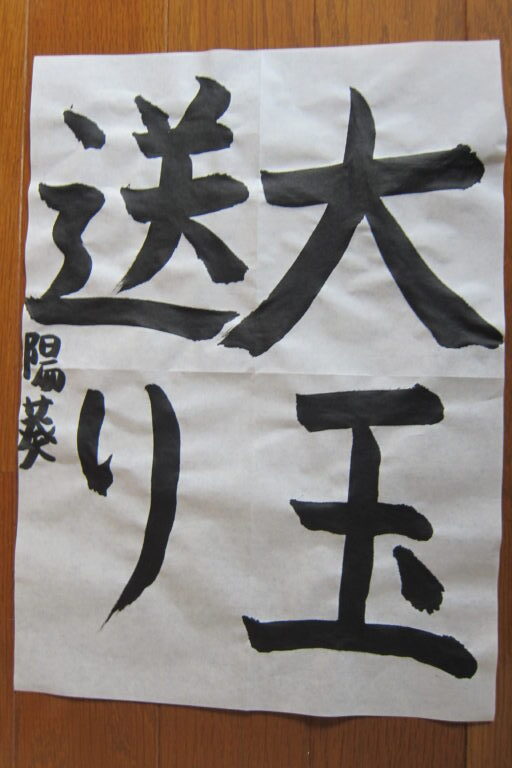 大玉
送り
陽葵